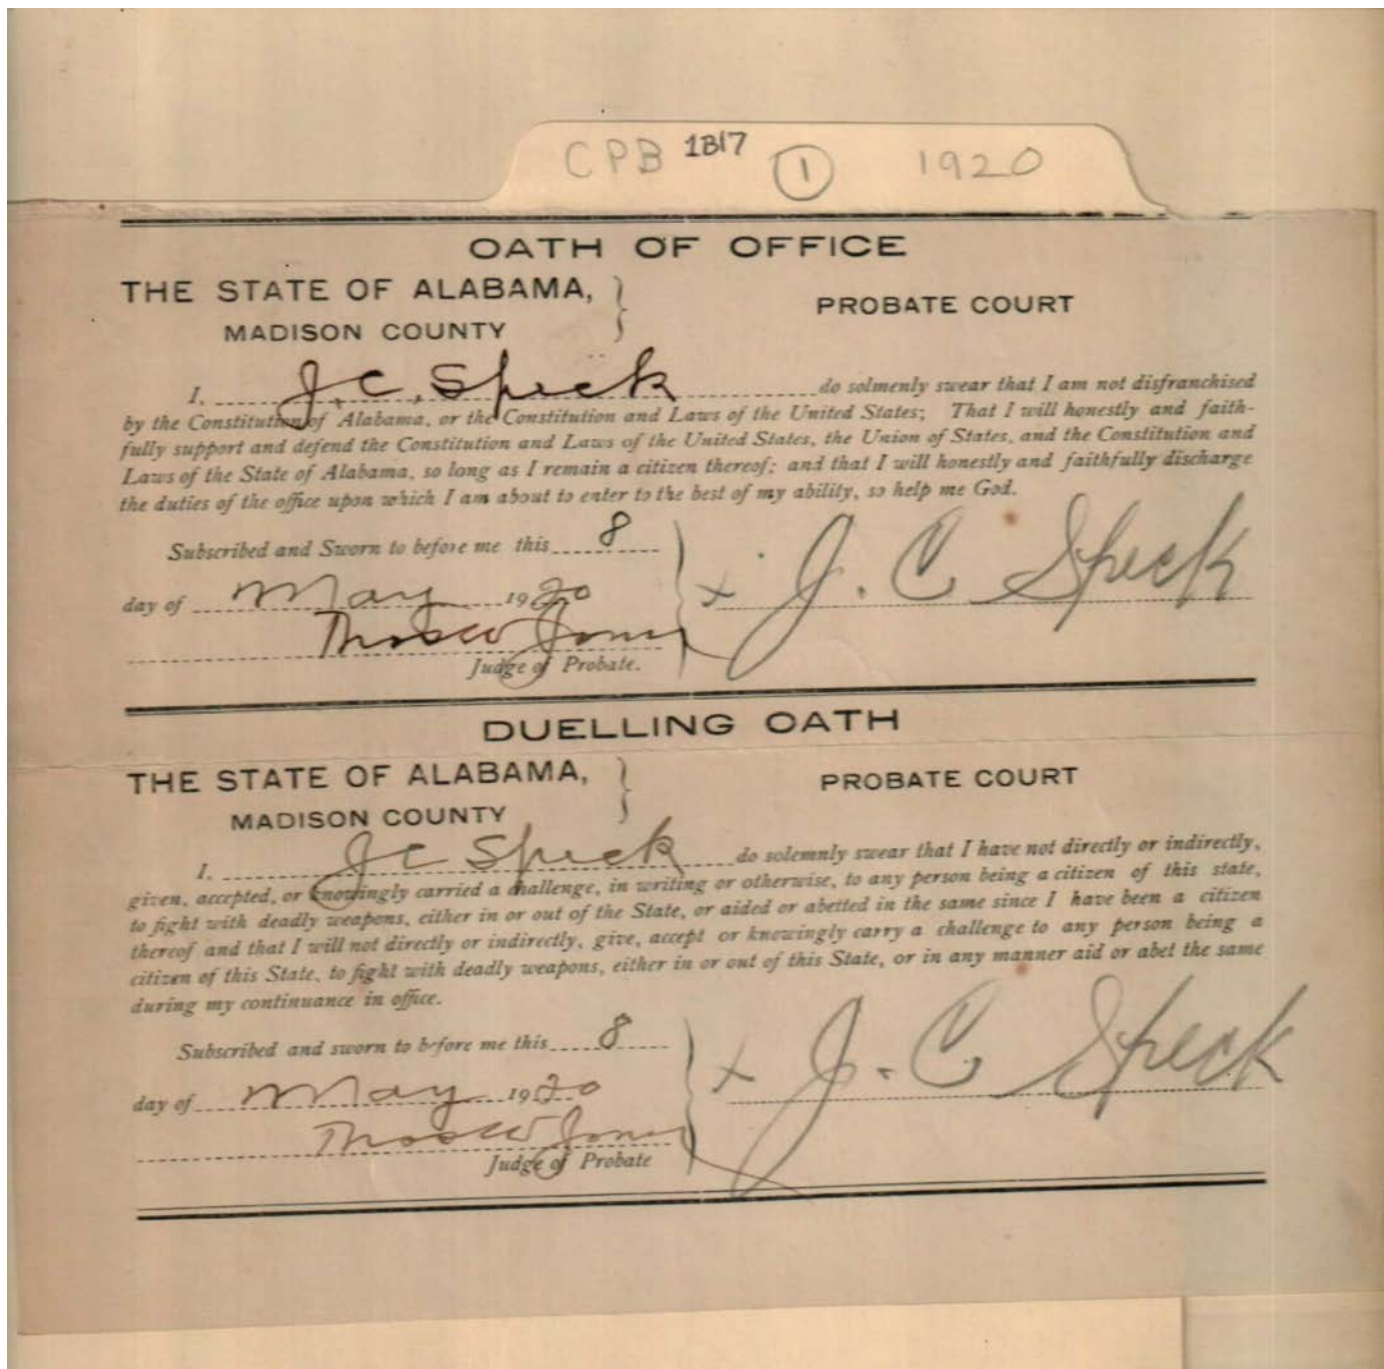 CPB 1B17 1 1920
OATH OF OFFICE
THE STATE OF ALABAMA, } PROBATE COURT
MADISON COUNTY
I, J. C. Speck do solmenly swear that I am not disfranchised
by the Constitution of Alabama, or the Constitution and Laws of the United States; That I will honestly and faith-
fully support and defend the Constitution and Laws of the United States, the Union of States, and the Constitution and
Laws of the State of Alabama, so long as I remain a citizen thereof; and that I will honestly and faithfully discharge
the duties of the office upon which I am about to enter to the best of my ability, so help me God.
Subscribed and Sworn to before me this 8
day of May 1920 x J. C Speck
Thos W Jones
Judge of Probate.
DUELLING OATH
THE STATE OF ALABAMA, } PROBATE COURT
MADISON COUNTY
I, J C Speck do solemnly swear that I have not directly or indirectly,
given, accepted, or knowingly carried a challenge, in writing or otherwise, to any person being a citizen of this state,
to fight with deadly weapons, either in or out of the State, or aided or abetted in the same since I have been a citizen
thereof and that I will not directly or indirectly, give, accept or knowingly carry a challenge to any person being a
citizen of this State, to fight with deadly weapons, either in or out of this State, or in any manner aid or abet the same
during my continuance in office.
Subscribed and sworn to before me this 8
day of May 1920 x J. C Speck
Thos W Jones
Judge of Probate